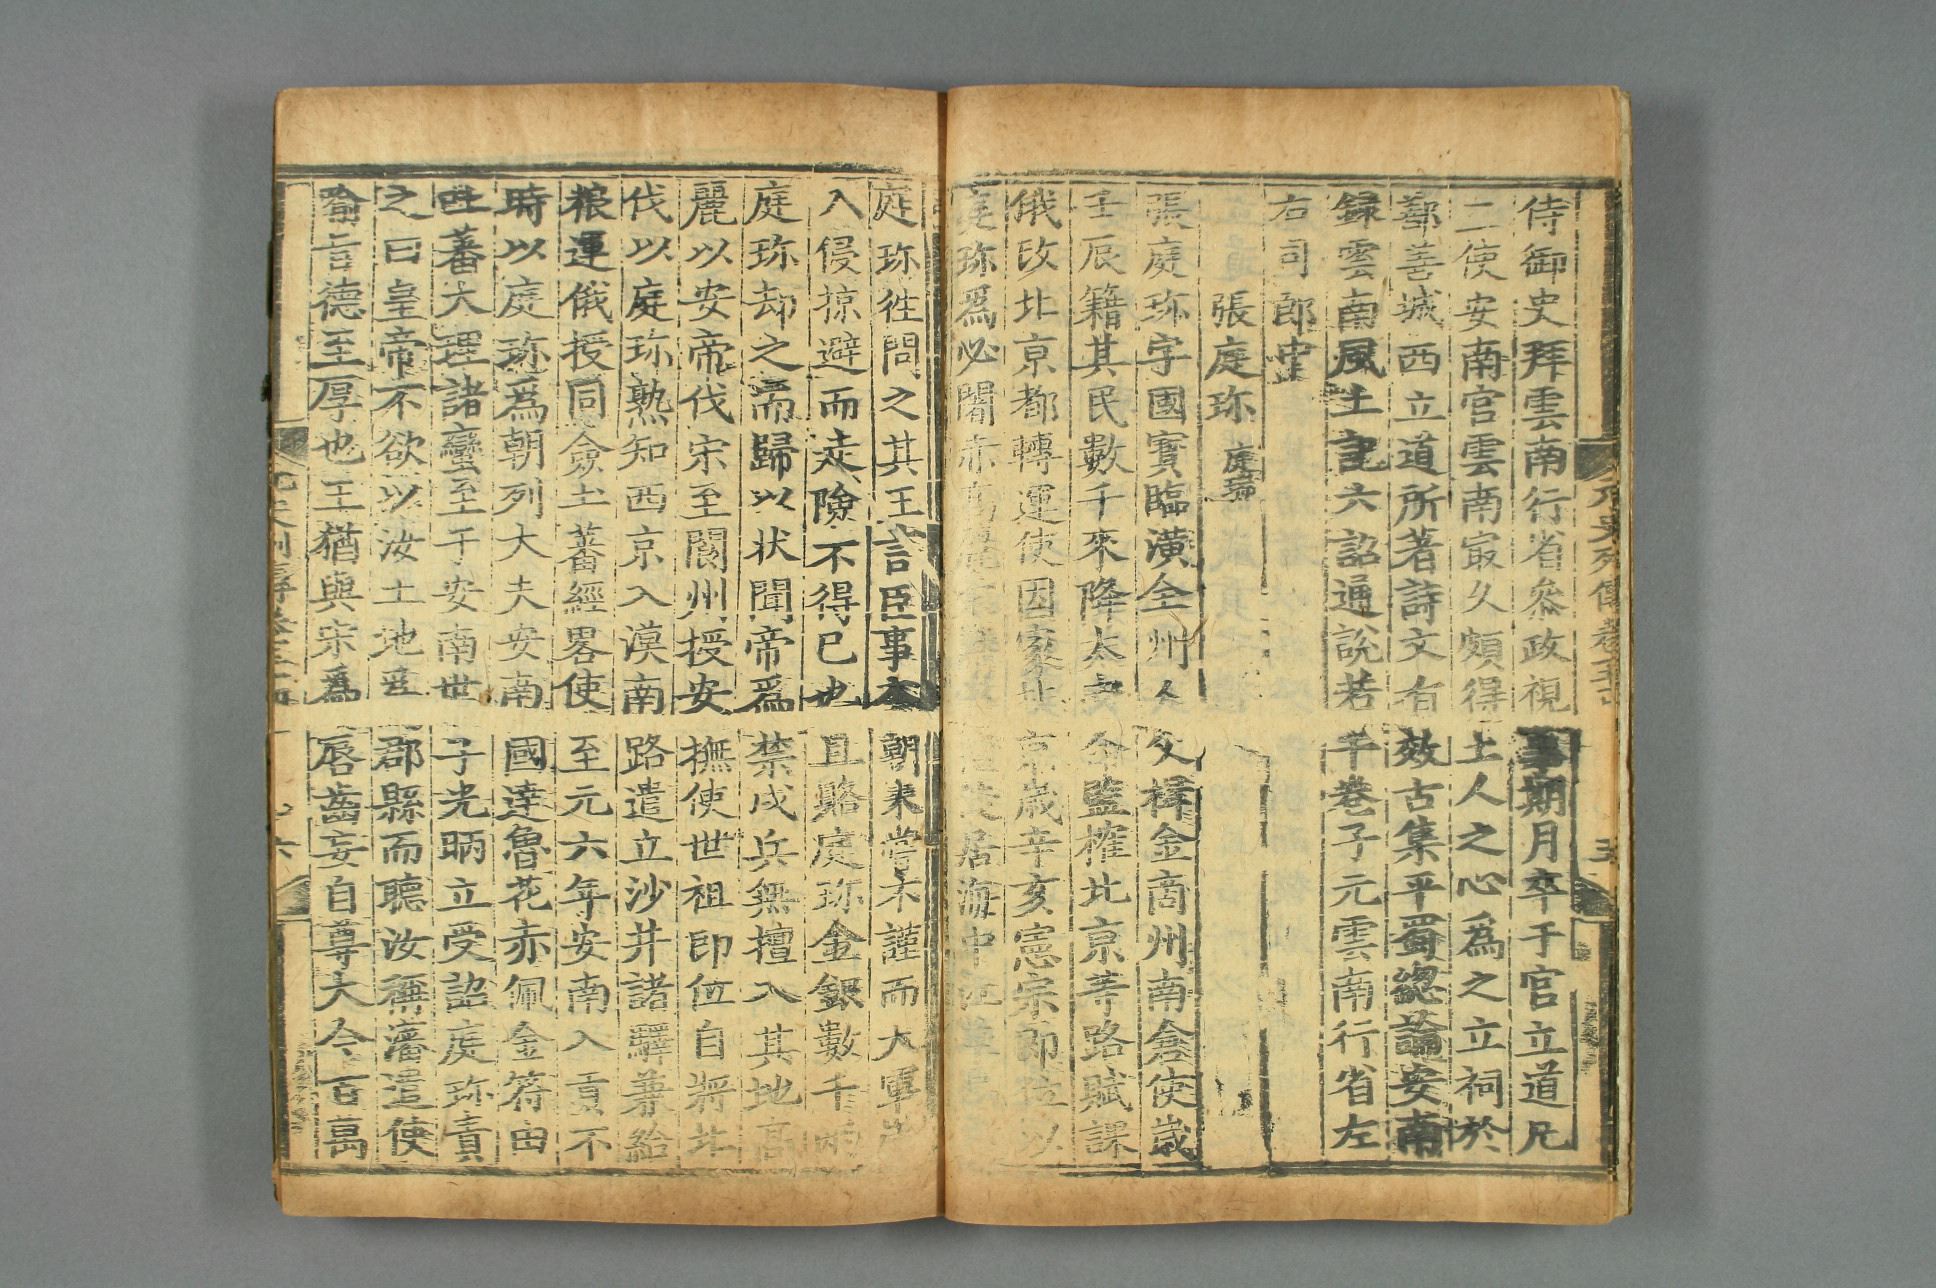 侍御史拜雲南行省叅政視事期月卒于官立道凡
二使安南官雲南冣久頗得土人之心爲之立祠於
鄯善城西立道所著詩文有效古集平蜀總論安南
録雲南風土記六詔通説若干卷子元雲南行省左
右司郎中
張庭珍 庭瑞
張庭珍字國寳臨潢全州人父楫金商州南倉使歳
壬辰籍其民數千來降太宗命監榷北京等路賦課
俄改北京都轉運使因家北京歳辛亥憲宗即位以
庭珍爲必闍赤高麗
居海中江華
庭珍徃問之其王言臣事本朝未嘗不謹而大軍
入侵掠避而走險不得已也且賂庭珍金銀數千兩
庭珍却之而歸以状聞帝爲禁戍兵無擅入其地髙
麗以安帝伐宋至閬州授安撫使世祖即位自將北
伐以庭珍熟知西京入漠南路遣立沙井諸驛兼給
粮運俄授同僉土蕃經畧使至元六年安南入貢不
時以庭珍爲朝列大夫安南國達魯花赤佩金符由
吐蕃大理諸蠻至于安南世子光昞立受詔庭珍責
之曰皇帝不欲以汝土地爲郡縣而聽汝稱藩遣使
喻旨德至厚也王猶與宋爲唇齒妄自尊大今百萬
元史列傳卷五十四
五
元史列傳卷五十四
六